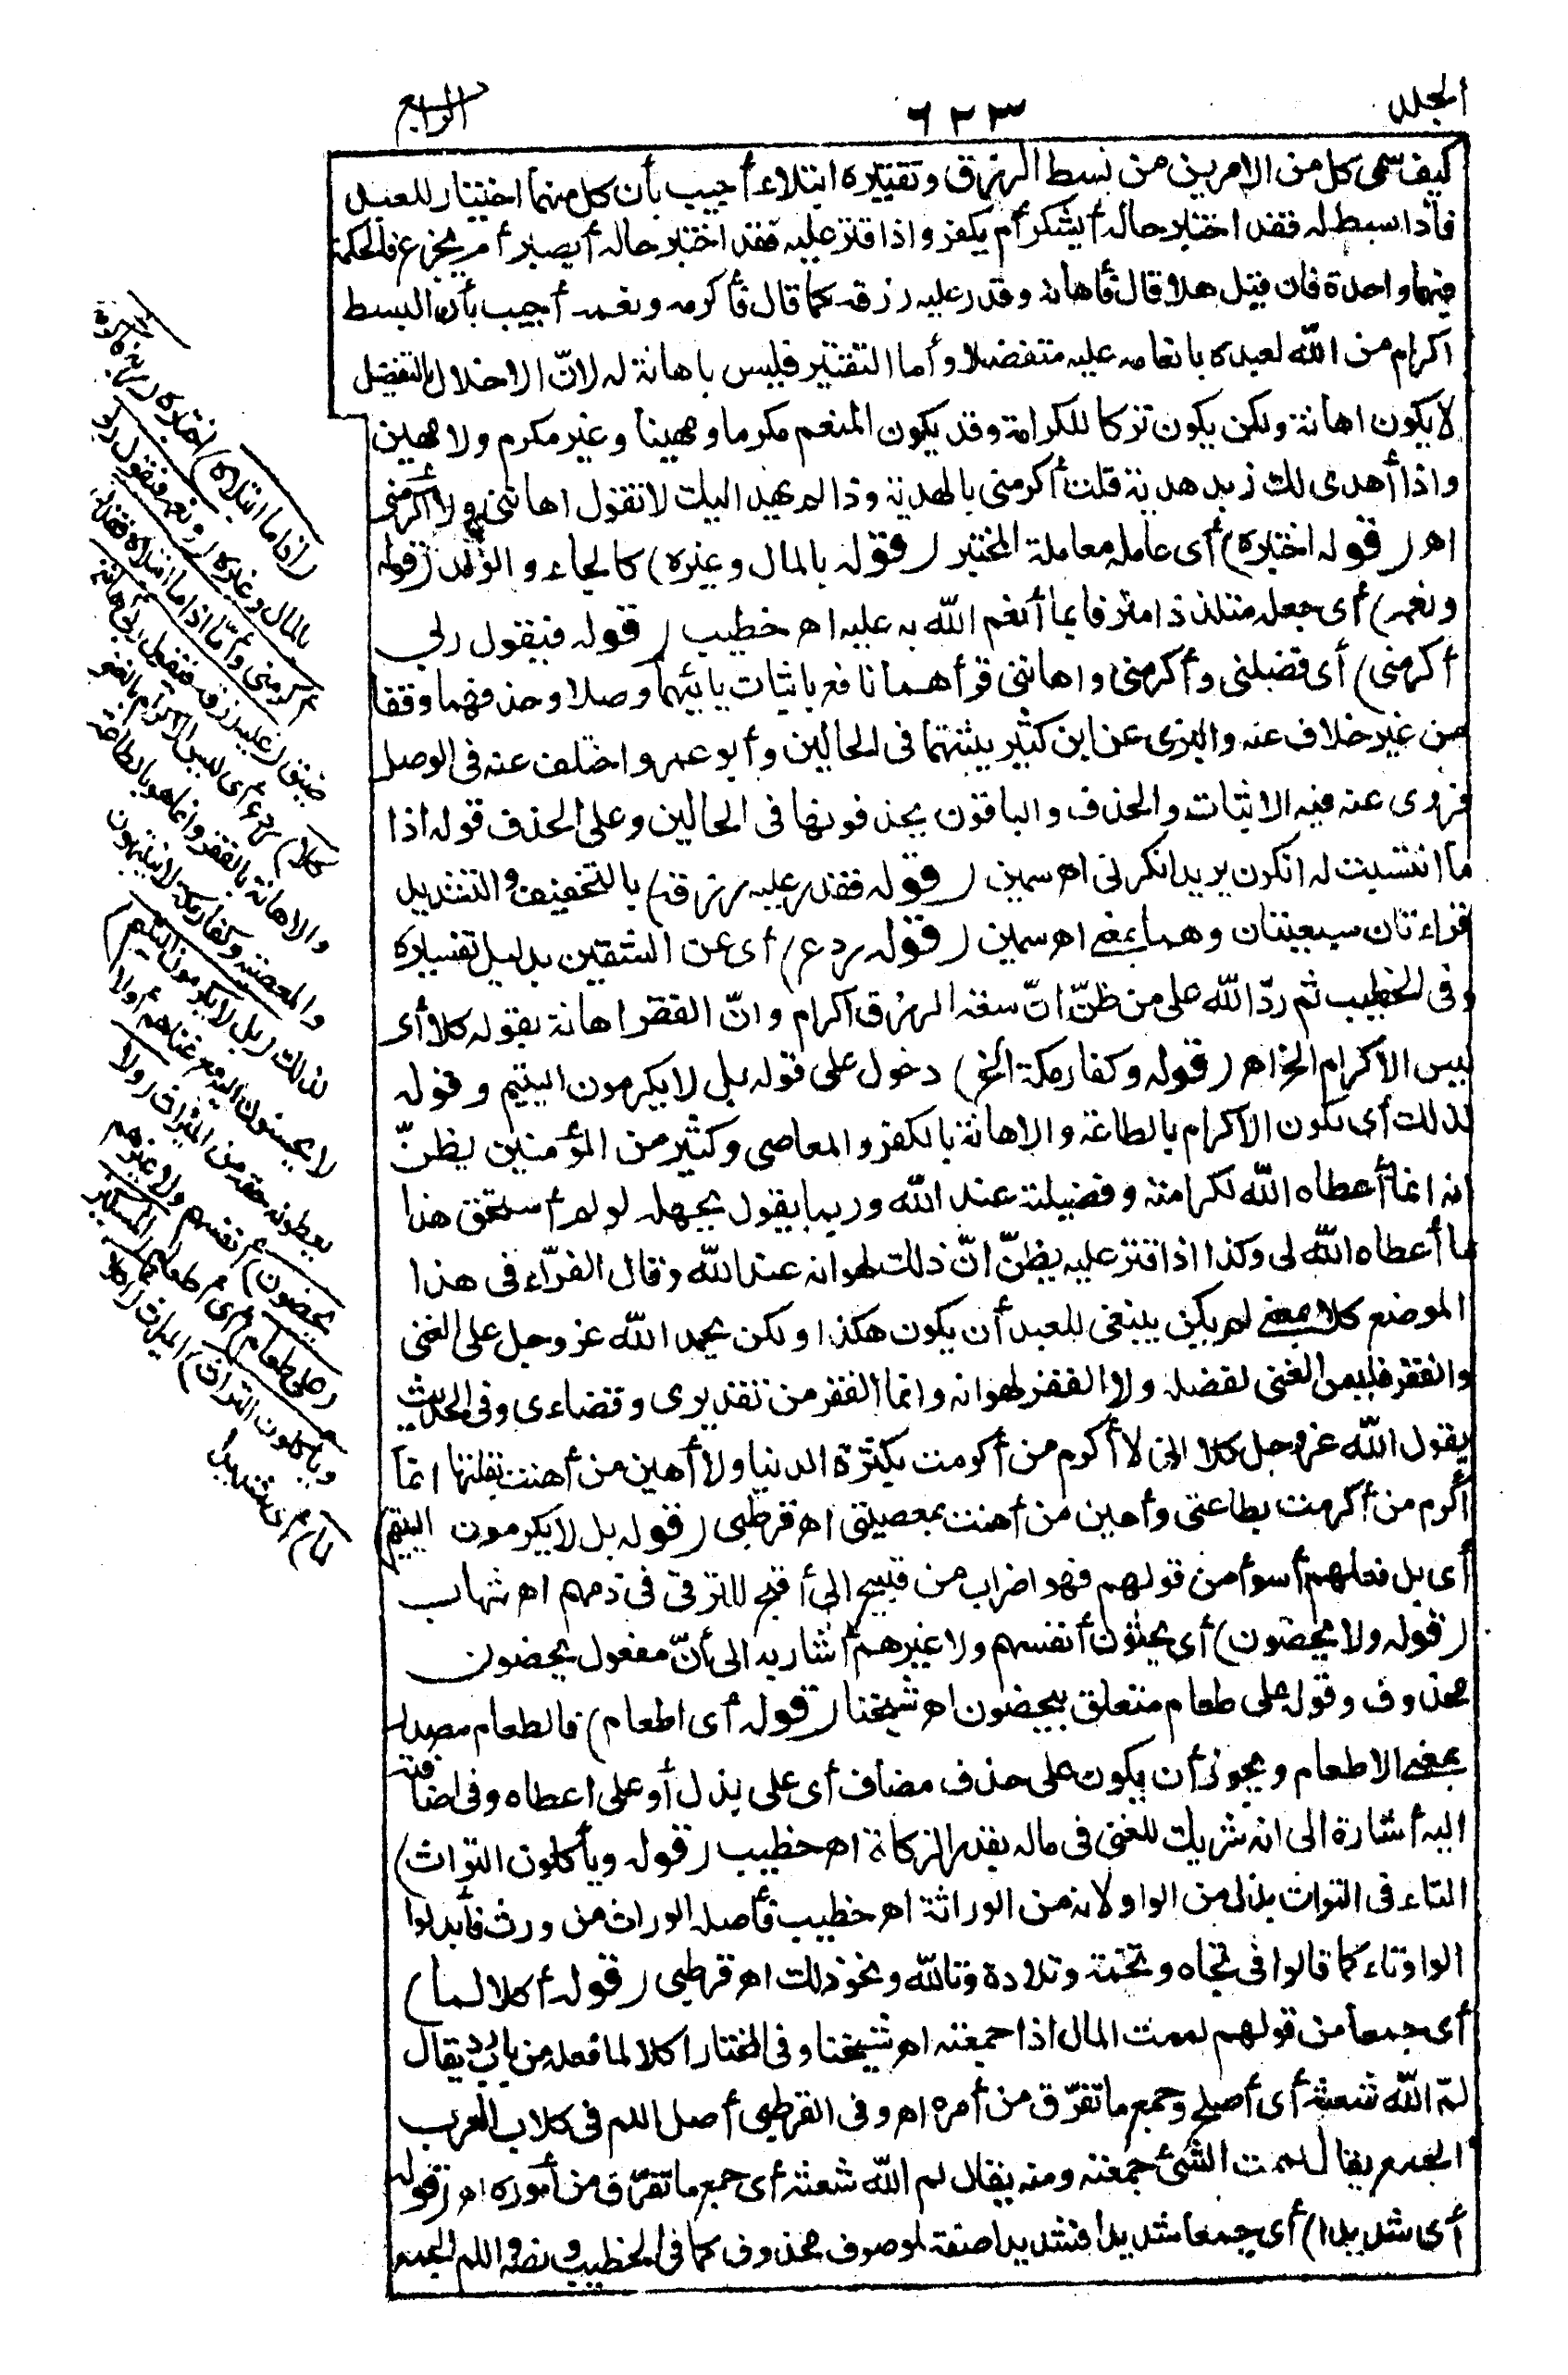 المجلد
٦٢٣
الرابع
كيف سمى كل من الامرين من بسط الرزق وتقتيره ابتلاء أجيب بأن كل منهما اختبار للعبد
فاذا بسط له فقد اختبر حاله أيشكر أم يكفر واذا قتر عليه فقد اختبر حاله أيصبر أم يجزع فالحكمة
فيهما واحدة فان قيل هلا قال فأهانه وقدر عليه رزقه كما قال فأكرمه ونعمه أجيب بأن البسط
اكرام من الله لعبده بانعامه عليه متفضلا وأما التقتير فليس باهانة له لانّ الاخلال بالتفضل
لا يكون اهانة ولكن يكون تركا للكرامة وقد يكون المنعم مكرما ومهينا وغير مكرم ولا مهين
واذا أهدى لك زيد هدية قلت أكرمنى بالهدية وذا لم يهد اليك لا تقول اهاننى ولا أكرمنى
اهـ (قوله اختبره) أى عامله معاملة المختبر (قوله بالمال وغيره) كالجاه والولد (قوله
ونعمه) أى جعله متلذذا مترفا بما أنعم الله به عليه اهـ خطيب (قوله فيقول ربى
أكرمنى) أى فضلنى وأكرمنى واهاننى قرأهما نافع باثبات يائيهما وصلا وحذفهما وقفا
من غير خلاف عنه والبزى عن ابن كثير يثبتهما فى الحالين وأبو عمرو اختلف عنه فى الوصل
فروى عنه فيه الاثبات والحذف والباقون يحذفونها فى الحالين وعلى الحذف قوله اذا
ما انتسبت له انكرن يريد انكرنى اهـ سمين (قوله فقدر عليه رزقه) بالتخفيف والتشديد
قراءتان سبعيتان وهما بمعنى اهـ سمين (قوله ردع) أى عن الشقين بدليل تفسيره
وفى الخطيب ثم ردّ الله على من ظنّ انّ سعة الرزق اكرام وانّ الفقر اهانة بقوله كلا أى
ليس الاكرام الخ اهـ (قوله وكفار مكة الخ) دخول على قوله بل لا يكرمون اليتيم وقوله
لذلك أى لكون الاكرام بالطاعة والاهانة بالكفر والمعاصى وكثير من المؤمنين يظنّ
انه انما أعطاه الله لكرامته وفضيلته عند الله وربما يقول بجهله لو لم أستحق هذا
ما أعطاه الله لى وكذا اذا قتر عليه يظنّ انّ ذلك لهوانه عند الله وقال الفرّاء فى هذا
الموضع كلا بمعنى لم يكن ينبغى للعبد أن يكون هكذا ولكن يحمد الله عز وجل على الغنى
والفقر فليس الغنى لفضله ولا الفقر لهوانه وانما الفقر من تقديرى وقضاءى وفى الحديث
يقول الله عز وجل كلا انى لا أكرم من أكرمت بكثرة الدنيا ولا أهين من أهنت بقلتها انما
أكرم من أكرمت بطاعتى وأهين من أهنت بمعصيتى اهـ قرطبى (قوله بل لا يكرمون اليتيم)
أى بل فعلهم أسوأ من قولهم فهو اضراب من قبيح الى أقبح للترقى فى ذمهم اهـ شهاب
(قوله ولا يحضون) أى يحثون أنفسهم ولا غيرهم أشار به الى أنّ مفعول يحضون
محذوف وقوله على طعام متعلق بيحضون اهـ شيخنا (قوله أى اطعام) فالطعام مصدر
بمعنى الاطعام ويجوز أن يكون على حذف مضاف أى على بذل أو على اعطاه وفى اضافته
اليه أشارة الى انه شريك للغنى فى ماله بقدر الزكاة اهـ خطيب (قوله ويأكلون التراث)
التاء فى التراث بدل من الواو لانه من الوراثة اهـ خطيب فأصله الوراث من ورث فأبدلوا
الواو تاء كما قالوا فى تجاه وتخمة وتلادة وتالله ونحو ذلك اهـ قرطبى (قوله أكلا لما)
أى جمعا من قولهم لممت المال اذا جمعته اهـ شيخنا وفى المختار اكلا لما فعله من باب رد يقال
لمّ الله شعثه أى أصلح وجمع ما تفرّق من أمره اهـ وفى القرطبى أصل اللم فى كلاب العرب
الجمع يقال لممت الشئ جمعته ومنه يقال لم الله شعثه أى جمع ما تفرّق من أموره اهـ (قوله
أى شديدا) أى جمعا شديدا فشديدا صفة لموصوف محذوف كما فى الخطيب ونصه اللم الجمع
(اذا ما ابتلاه) اختبره (ربه فأكرمه)
بالمال وغيره (ونعمه فيقول ربى
أكرمنى وأمّا اذا ما ابتلاه فقدر)
ضيق (عليه رزقه فيقول ربى اهاننى
كلا) ردع أى ليس الاكرام بالغنى
والاهانة بالفقر وانما هو بالطاعة
والمعصية وكفار مكة لا ينتبهون
لذلك (بل لا يكرمون اليتيم)
لا يحسنون اليه مع غناهم أو لا
يعطونه حقه من الميراث (ولا
يحضون) أنفسهم ولا غيرهم
(على طعام) أى اطعام (المسكين
ويأكلون التراث) الميراث (اكلا
لما) أى شديدا